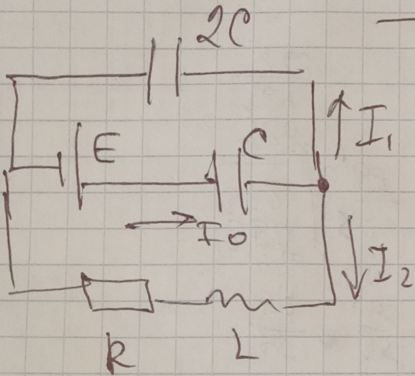 2C
E
C
I₁
I₀
I₂
R
L